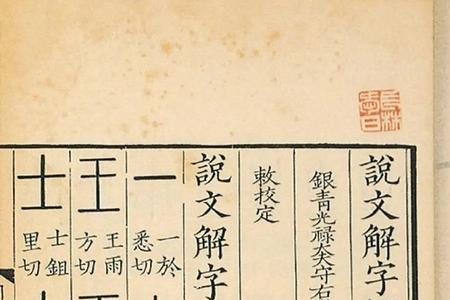 說文解字
銀青光禄大夫守右
敕校定
說文解字
一 一於
悉切
王 王雨
方切
士 士鉏
里切